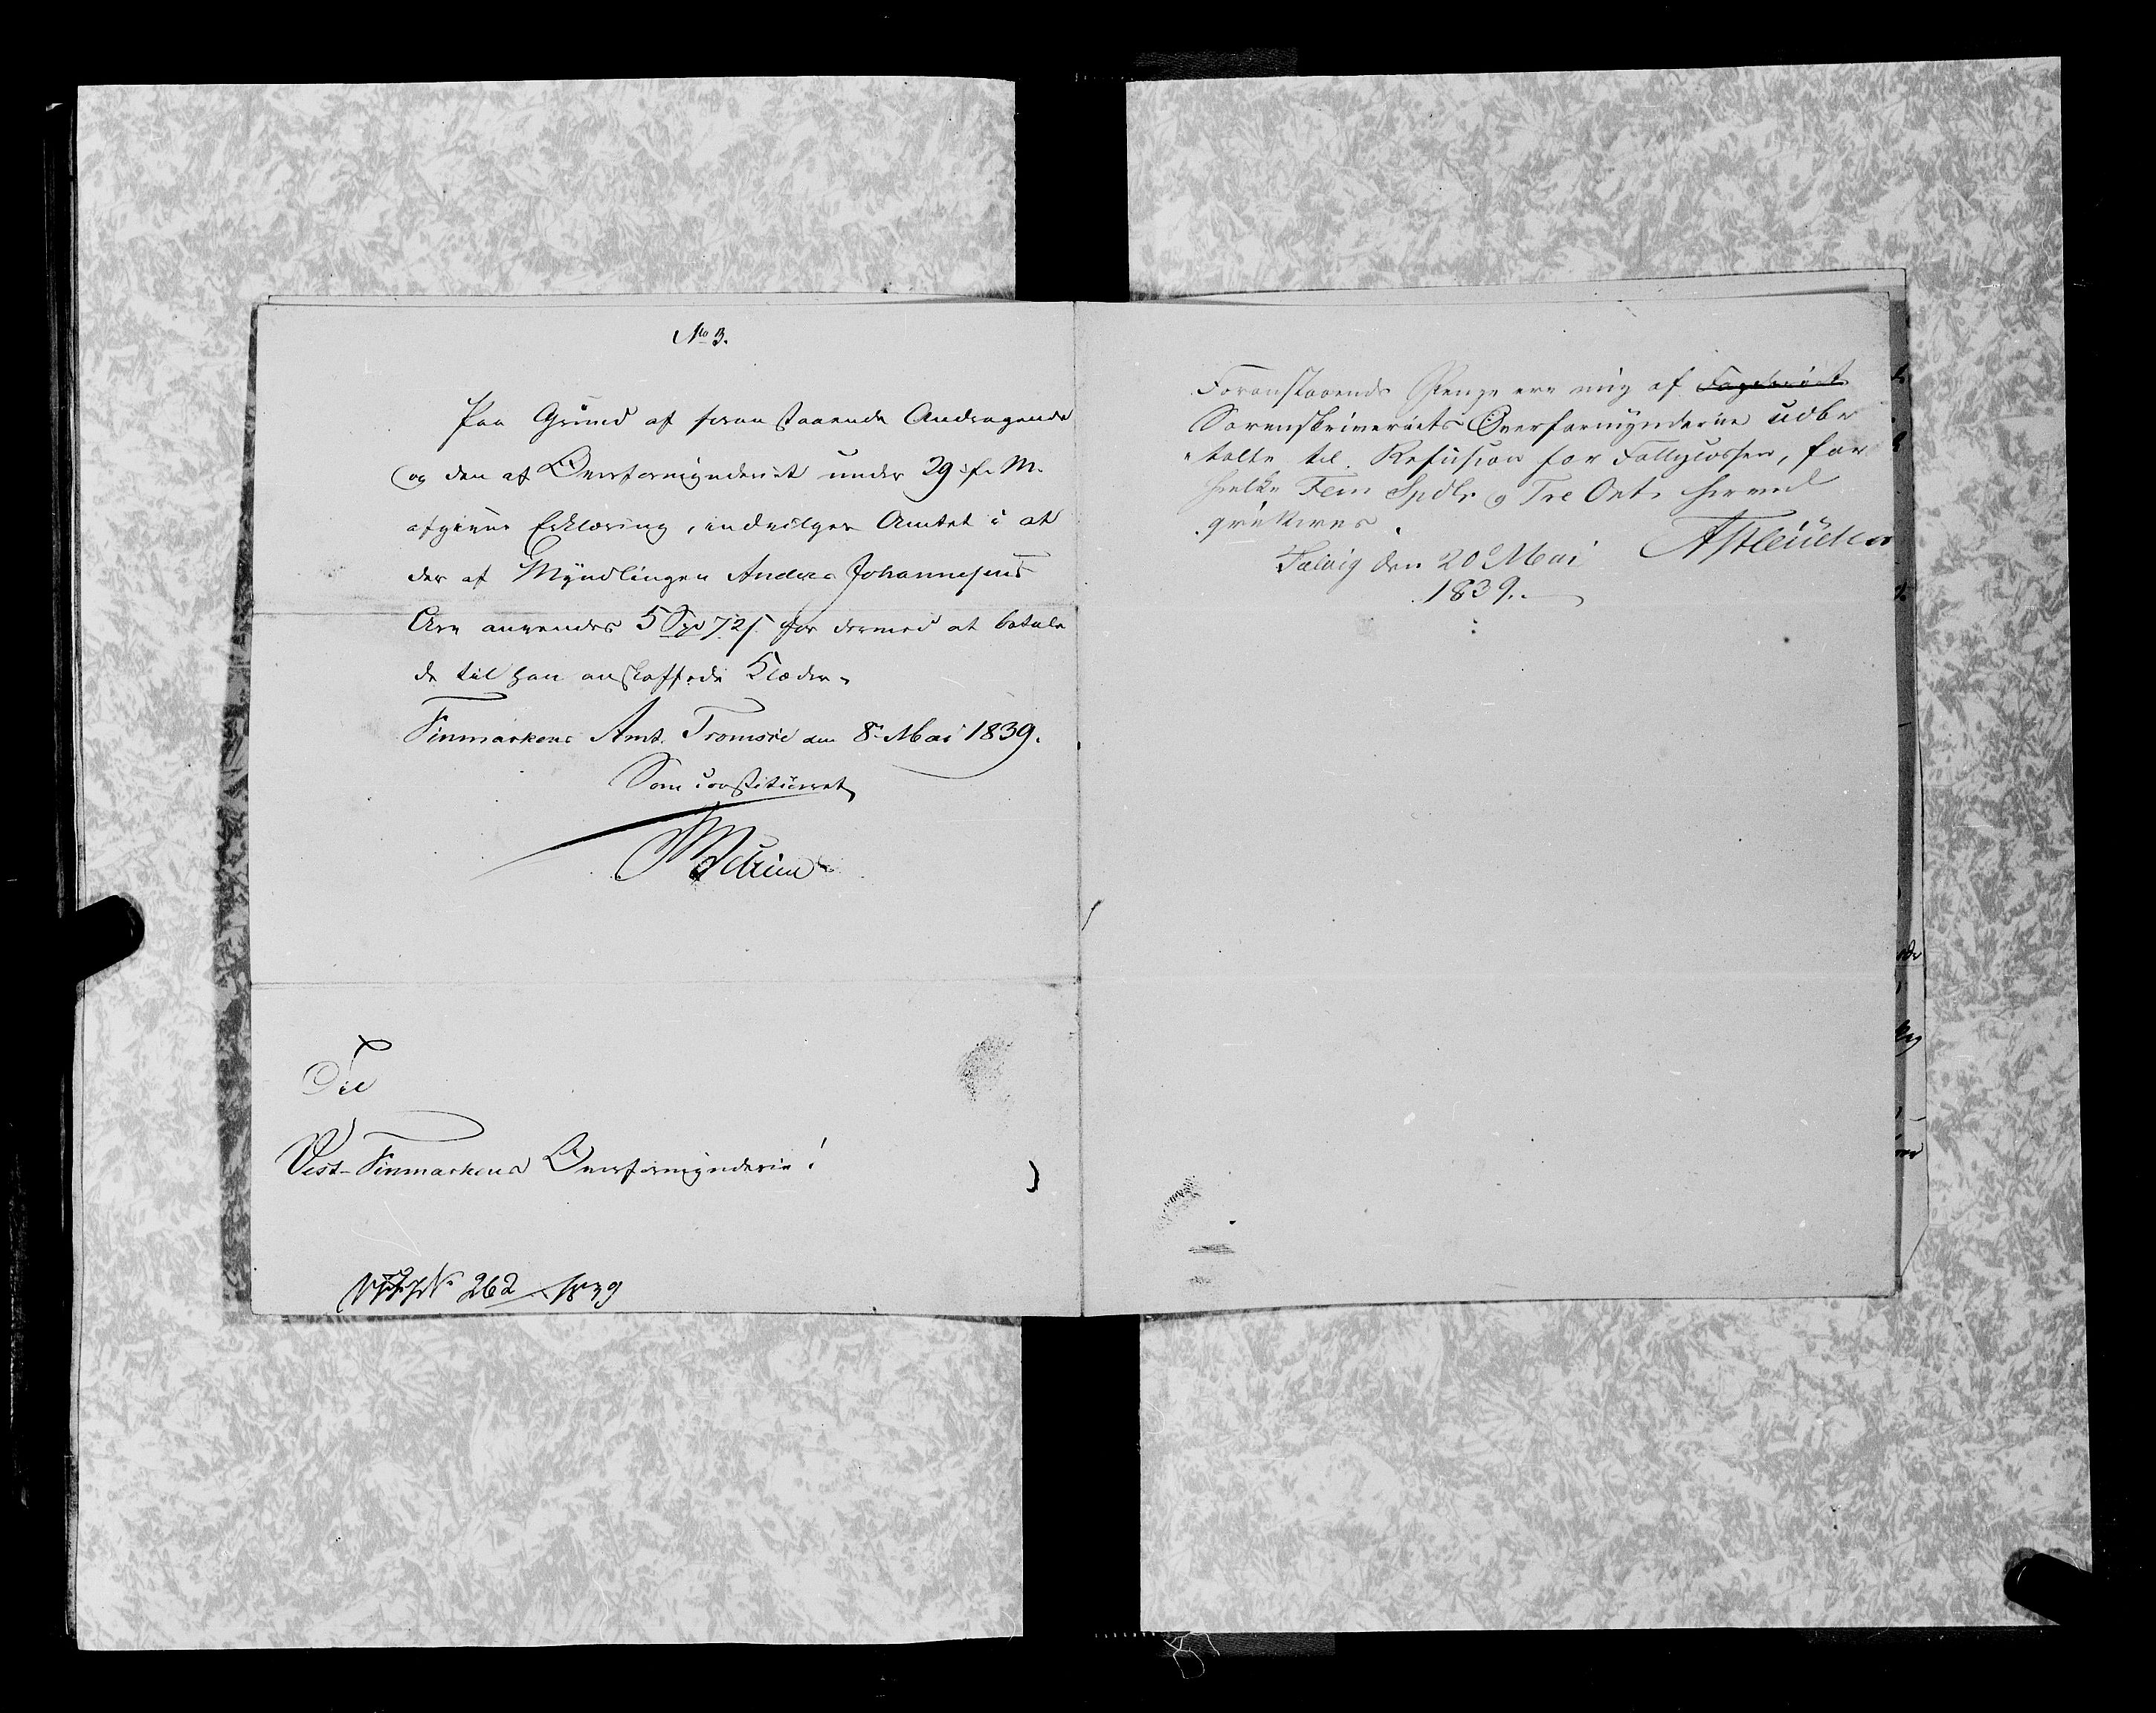 No 3.
Paa Grund af foranstaaende Andragende
og den af Overformynderiet under 29 f. M.
afgivne Erklæring, indvilger Amtet i at
der af Myndlingen Anders Johannesens
Arv anvendes 5 Spd 72 s for dermed at betale
de til ham anskaffede Klæder.
Finmarkens Amt. Tromsøe den 8de Mai 1839.
Som constitueret
Til
Vest-Finmarkens Overformynderie!
No 262 1839
Foranstaaende Penge ere mig af
Sorenskriveriets Overformynderne udbe
talte til Refusion for Fattigcassen, for
hvilke Fem Spdlr og Tre Ort herved
qvitteres.
Talvig den 20de Mai
1839.